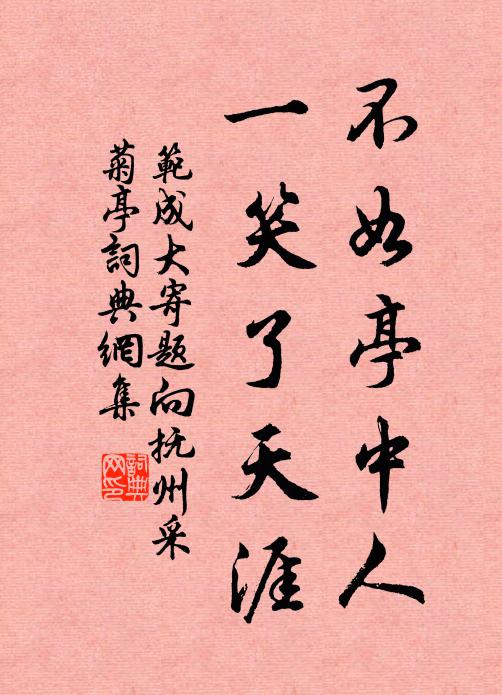 不如亭中人
一笑了天涯
範成大寄題向抚州采
菊亭詞典網集
詞典網印